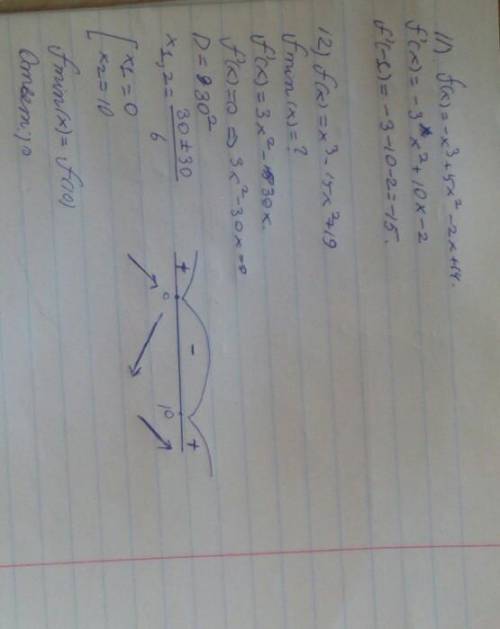 11) f(x)=-x³+5x²-2x+14.
f'(x)=-3x²+10x-2
f'(-1)=-3-10-2=-15.
12) f(x)=x³-15x²+19
fmin(x)=?
f'(x)=3x²-30x.
f'(x)=0 => 3x²-30x=0
D=30²
x1,2=30±30/6
x1=0
x2=10
+ - +
0 10
fmin(x)=f(10)
Ответ: 10